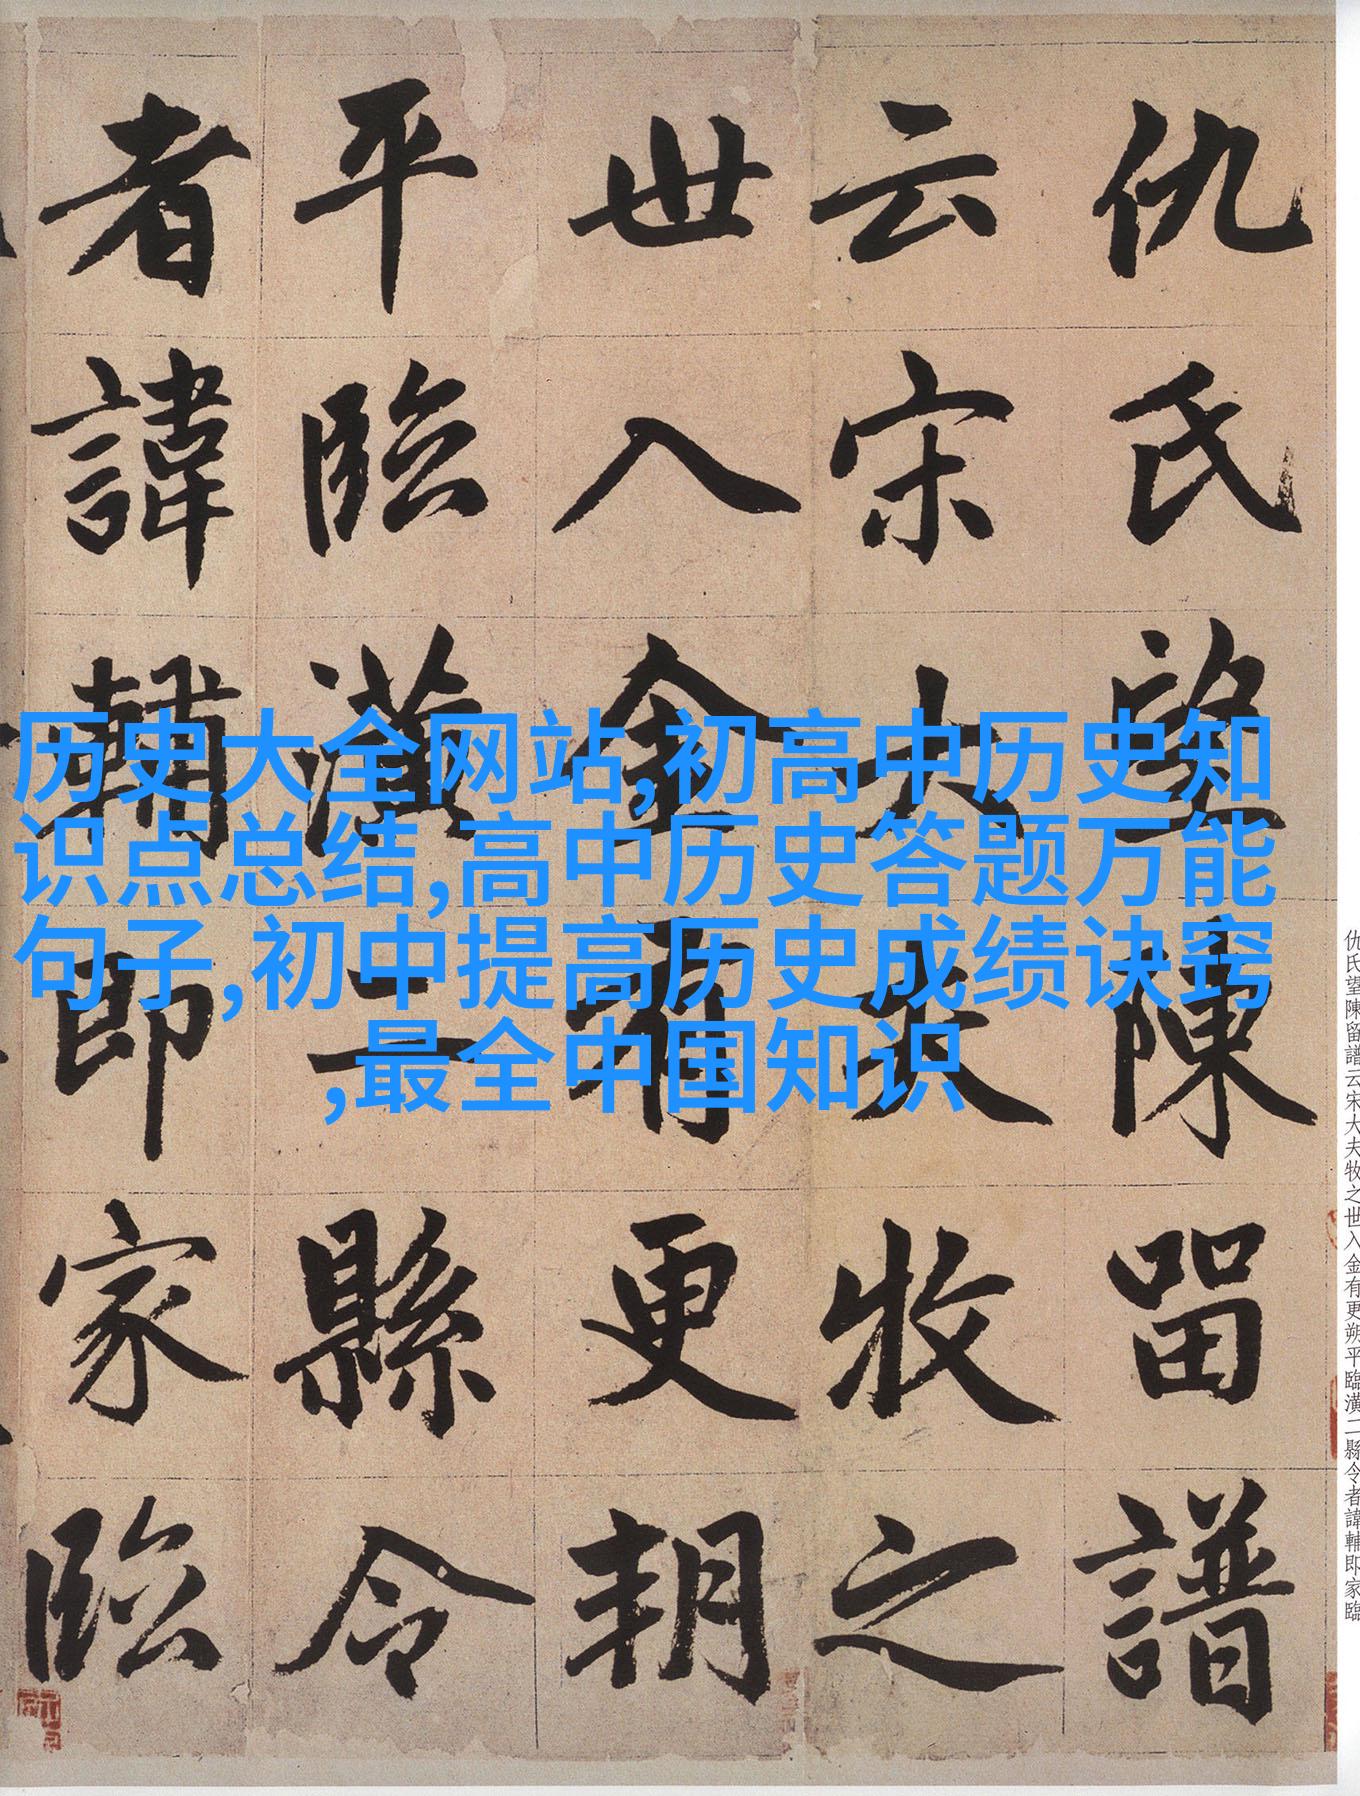 仇氏望陳留譜云宋大夫牧之世入金有更朔平臨潢二縣令者諱輔即家臨
仇氏望陳留譜
云宋大夫牧之
世入金有更朔
平臨潢二縣令
者諱輔即家臨
历史大全网站,初高中历史知
识点总结,高中历史答题万能
句子,初中提高历史成绩诀窍
,最全中国知识